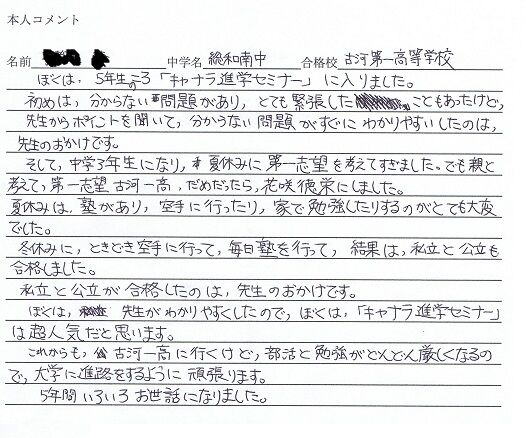 本人コメント
名前 中学名 総和南中 合格校 古河第一高等学校
ぼくは、5年生のころ「キャナラ進学セミナー」に入りました。
初めは、分からない問題があり、とても緊張したこともあったけど、
先生からポイントを聞いて、分からない問題がすぐにわかりやすいしたのは、
先生のおかげです。
そして、中学3年生になり、夏休みに第一志望を考えてすぎました。でも親と
考えて、第一志望古河一高、だめだったら、花咲徳栄にしました。
夏休みは、塾があり、空手に行ったり、家で勉強したりするのがとても大変
でした。
冬休みに、ときどき空手に行って、毎日塾を行って、結果は、私立と公立も
合格しました。
私立と公立が合格したのは、先生のおかげです。
ぼくは、先生がわかりやすくしたので、ぼくは、「キャナラ進学セミナー」
は超人気だと思います。
これからも、古河一高に行くけど、部活と勉強がどんどん厳しくなるの
で、大学に進路をするように頑張ります。
5年間いろいろお世話になりました。